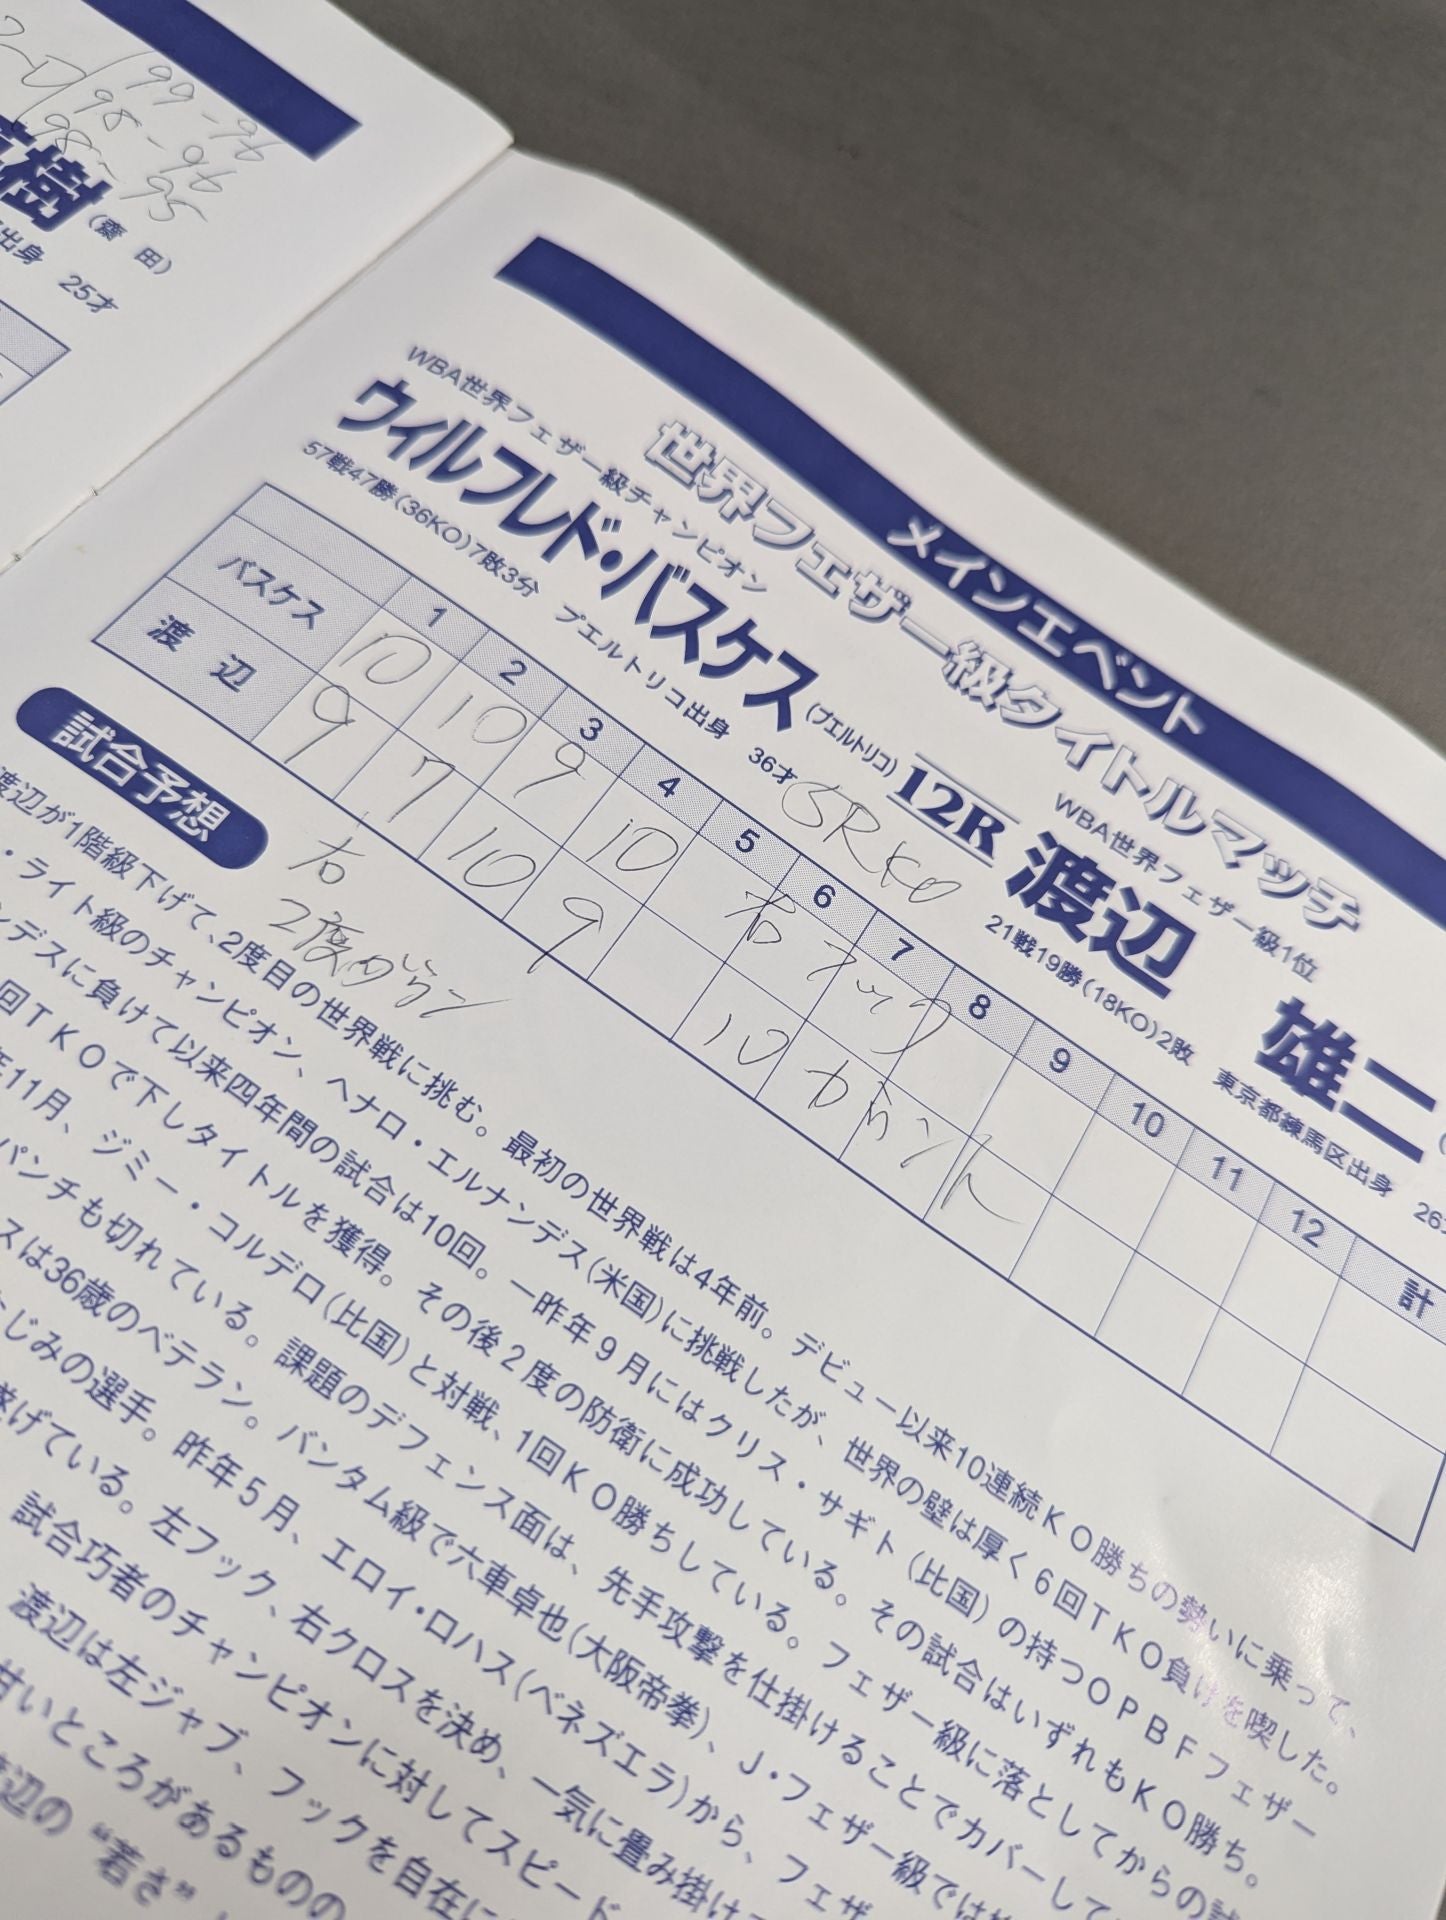 99-96
98-96
98-95
樹 (齋田)
出身 25才
メインエベント
世界フェザー級タイトルマッチ
WBA世界フェザー級チャンピオン
ウィルフレド・バスケス (プエルトリコ)
57戦47勝(36KO)7敗3分 プエルトリコ出身 36才
12R
5RKO
WBA世界フェザー級1位
渡辺 雄二
21戦19勝(18KO)2敗 東京都練馬区出身 26
1 2 3 4 5 6 7 8 9 10 11 12 計
バスケス 10 10 9 10 右フック
渡辺 9 7 10 9 10カウント
右
2度ダウン
試合予想
渡辺が1階級下げて、2度目の世界戦に挑む。最初の世界戦は4年前。デビュー以来10連続KO勝ちの勢いに乗って、
・ライト級のチャンピオン、ヘナロ・エルナンデス(米国)に挑戦したが、世界の壁は厚く6回TKO負けを喫した。
ンデスに負けて以来四年間の試合は10回。一昨年9月にはクリス・サギト(比国)の持つOPBFフェザー
回TKOで下しタイトルを獲得。その後2度の防衛に成功している。その試合はいずれもKO勝ち。
年11月、ジミー・コルデロ(比国)と対戦、1回KO勝ちしている。フェザー級に落としてからの試
パンチも切れている。課題のデフェンス面は、先手攻撃を仕掛けることでカバーして
スは36歳のベテラン。バンタム級で六車卓也(大阪帝拳)、J・フェザー級では
じみの選手。昨年5月、エロイ・ロハス(ベネズエラ)から、フェザ
遂げている。左フック、右クロスを決め、一気に畳み掛け
試合巧者のチャンピオンに対してスピード
渡辺は左ジャブ、フックを自在に
甘いところがあるものの
辺の“若さ”